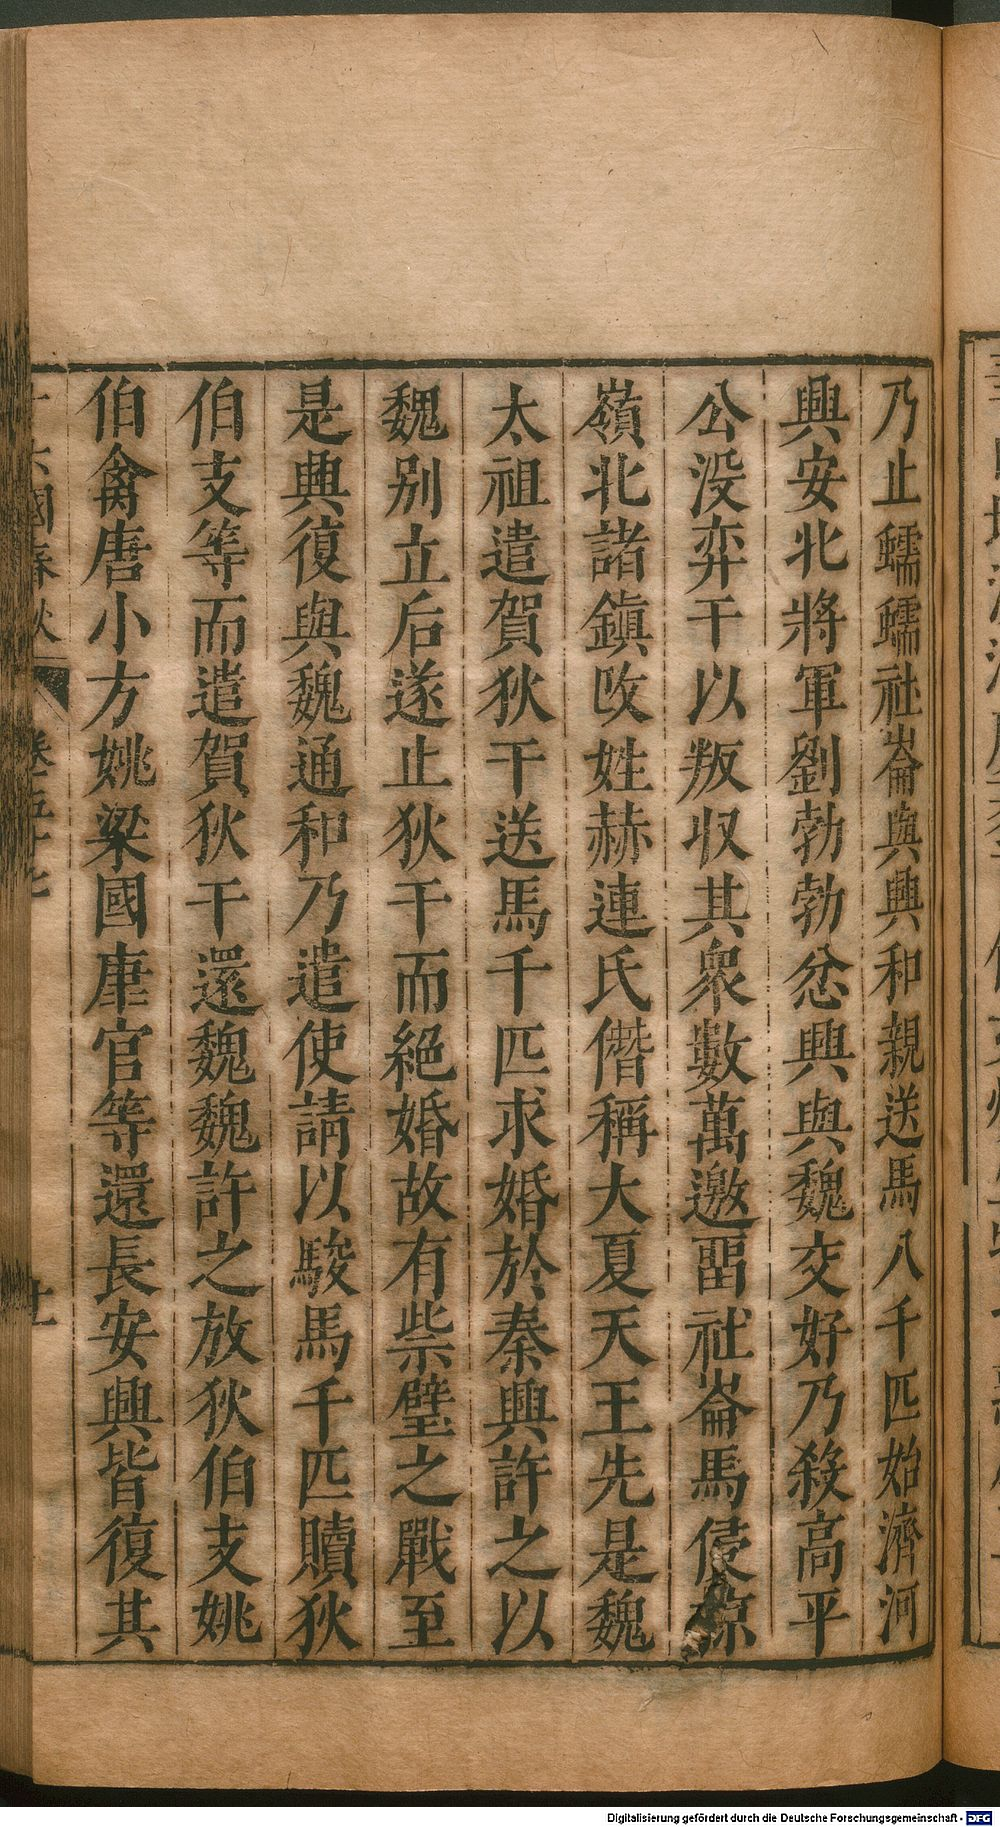 乃止蠕蠕社崙與興和親送馬八千匹始濟河
興安北將軍劉勃勃忿興與魏交好乃殺高平
公没弈干以叛収其衆數萬邀畱社崙馬侵掠
嶺北諸鎮改姓赫連氏僭稱大夏天王先是魏
太祖遣賀狄干送馬千匹求婚於秦興許之以
魏别立后遂止狄干而絕婚故有柴壁之戰至
是興復與魏通和乃遣使請以駿馬千匹贖狄
伯支等而遣賀狄干還魏魏許之放狄伯支姚
伯禽唐小方姚梁國康官等還長安興皆復其
十六國春秋 卷五十七 十一
Digitalisierung gefördert durch die Deutsche Forschungsgemeinschaft - DFG